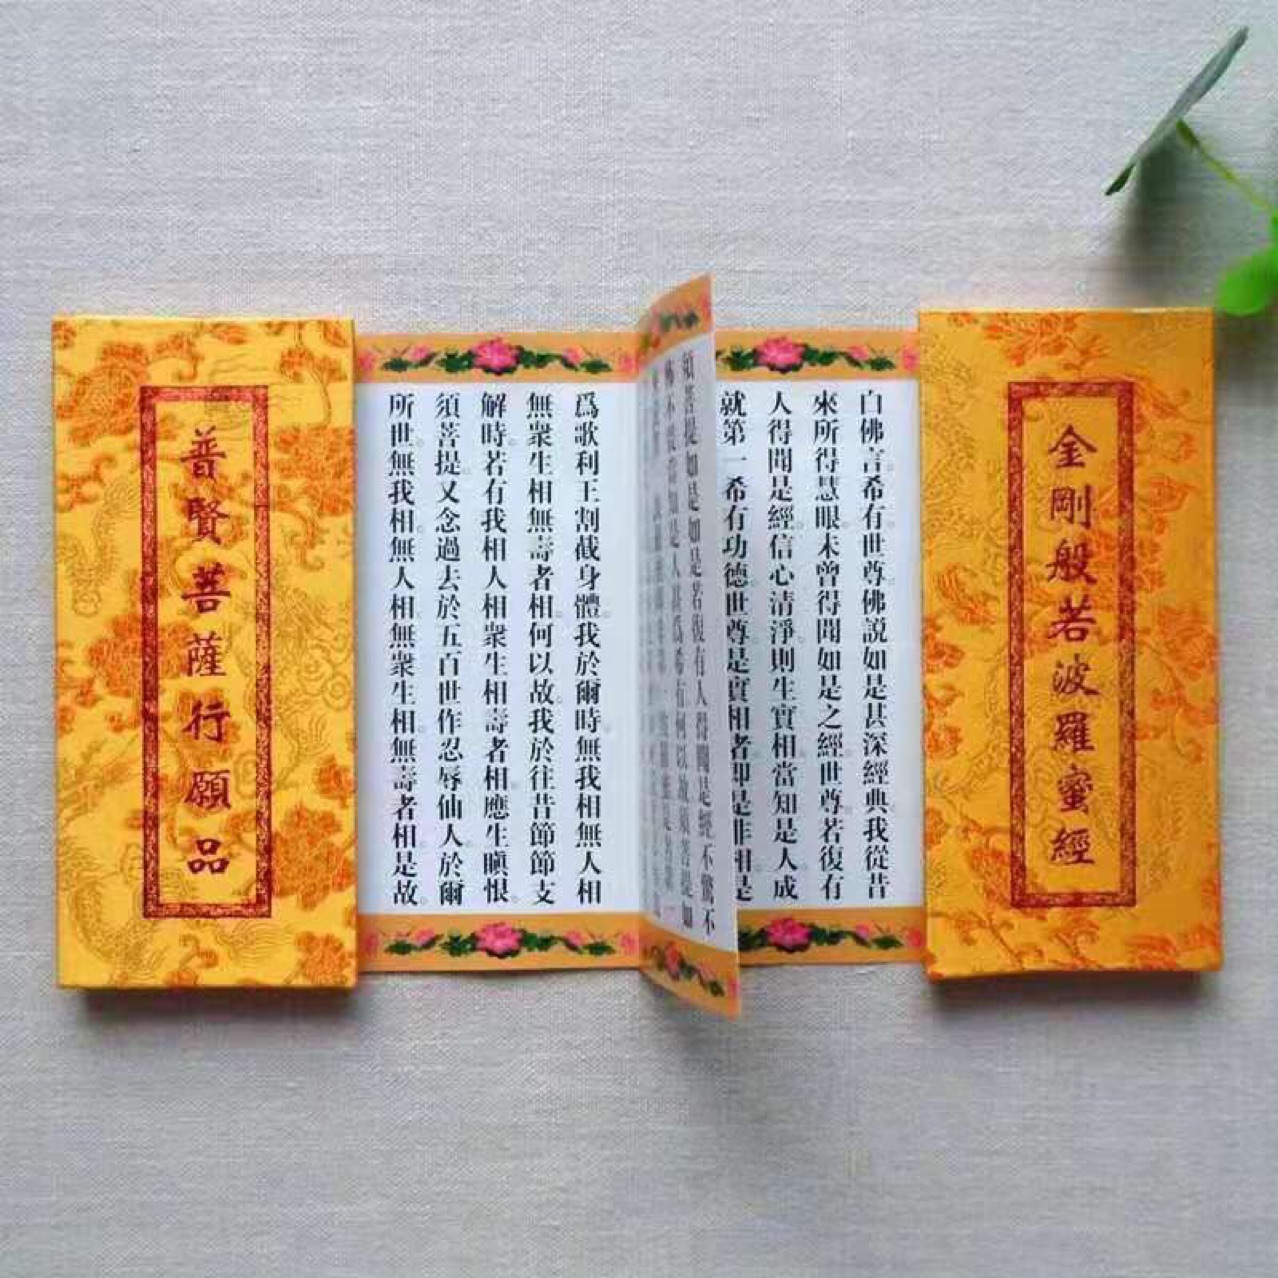 金剛般若波羅蜜經
白佛言。希有世尊佛説如是甚深經典我從昔
來所得慧眼。未曾得聞如是之經。世尊。若復有
人得聞是經。信心清淨。則生實相。當知是人成
就第一希有功德。世尊。是實相者即是非相。是
須菩提如是如是若復有人得聞是經不驚不
怖不畏當知是人甚爲希有何以故須菩提如
爲歌利王割截身體。我於爾時。無我相無人相
無衆生相無壽者相。何以故。我於往昔節節支
解時。若有我相人相衆生相壽者相。應生瞋恨。
須菩提。又念過去於五百世作忍辱仙人。於爾
所世。無我相。無人相。無衆生相。無壽者相。是故。
普賢菩薩行願品